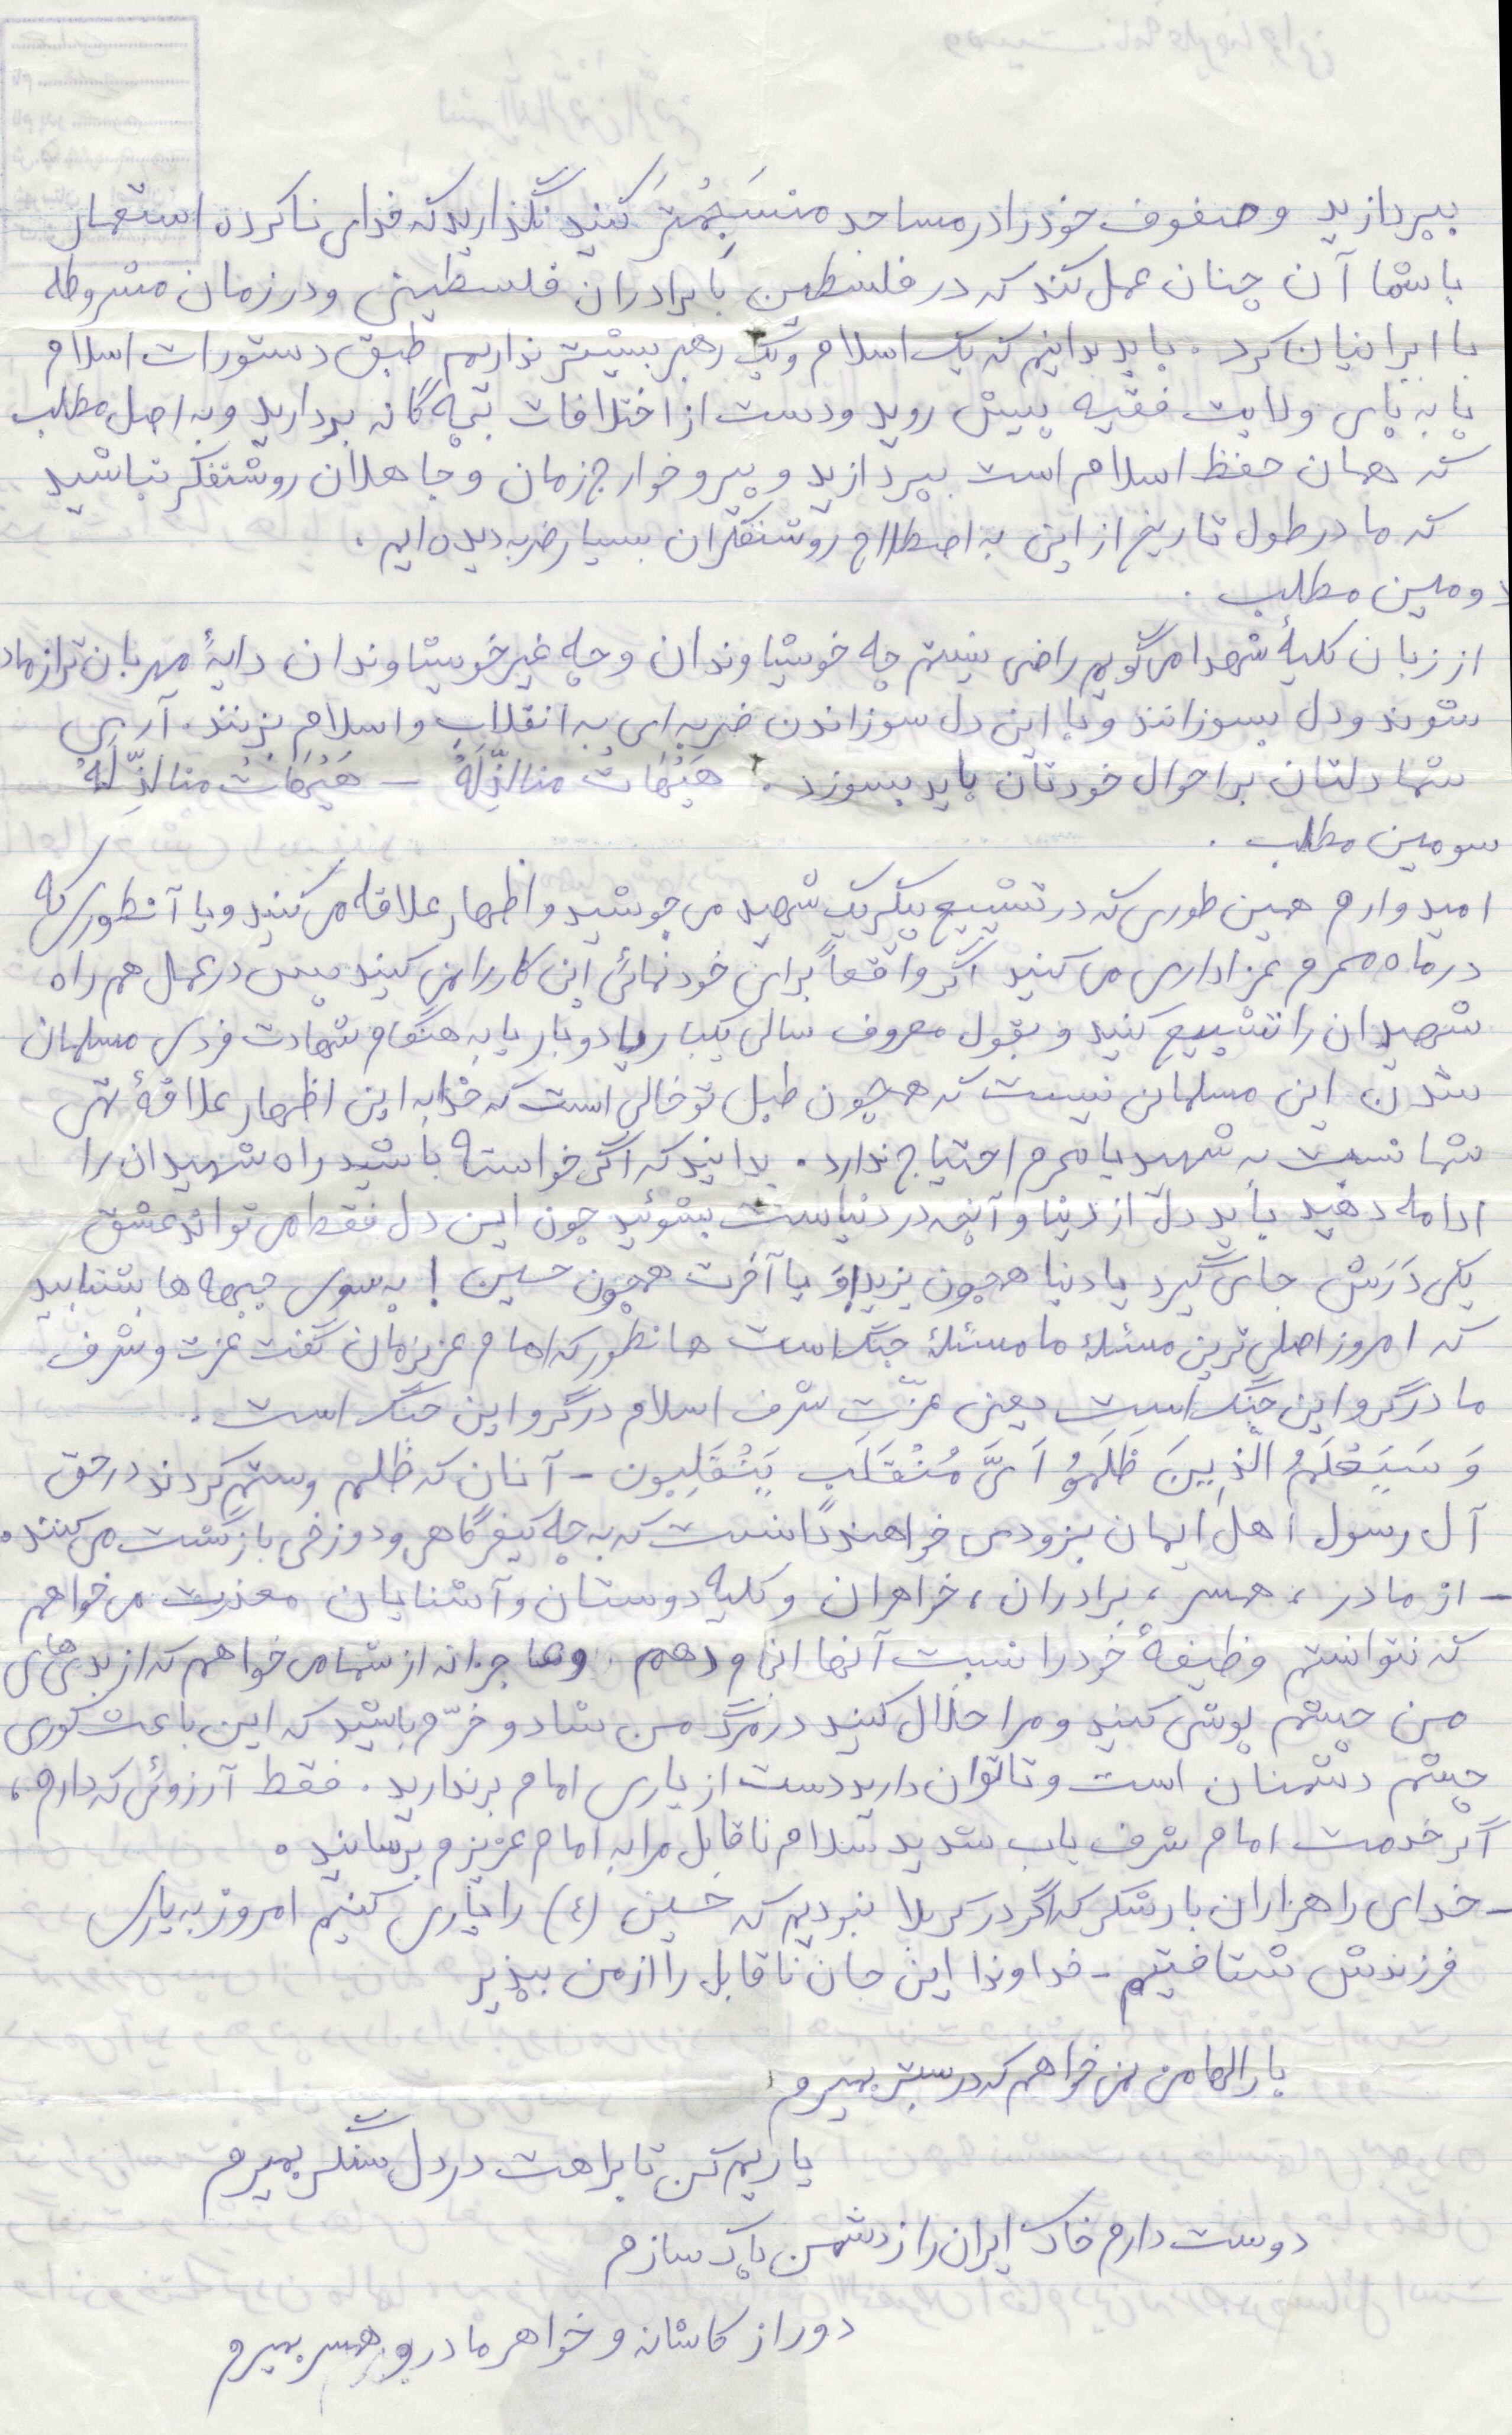 بپردازید و صفوف خود را در مساجد منسَجِمْتَر کنید نگذارید که خدای ناکرده استعمار
با شما آن چنان عمل کند که در فلسطین با برادران فلسطینی و در زمان مشروطه
با ایرانیان کرد. باید بدانیم که یک اسلام و یک رهبر بیشتر نداریم طبق دستورات اسلام
پا به پای ولایت فقیه پیش روید و دست از اختلافات بچه گانه بردارید و به اصل مطلب
که همان حفظ اسلام است بپردازید و پیرو خوارج زمان و جاهلان روشنفکر نباشید
که ما در طول تاریخ از این به اصطلاح روشنفکران بسیار ضربه دیده ایم.
دومین مطلب.
از زبان کلیهٔ شهدا می گویم راضی نیستم چه خویشاوندان و چه غیر خویشاوندان دایهٔ مهربان تر از مادر
شوند و دل بسوزانند و با این دل سوزاندن ضربه ای به انقلاب و اسلام بزنند. آری
شما دلتان بر احوال خودتان باید بسوزد. هَیْهٰاتْ منالذِّلَهْ – هَیْهٰاتْ منالذِّلَهْ
سومین مطلب.
امیدوارم همین طوری که در تشییع پیکر یک شهید می جوشید و اظهار علاقه می کنید و یا آنطوری که
در ماه محرم عزاداری می کنید اگر واقعاً برای خودنمائی این کار را نمی کنید پس در عمل هم راه
شهیدان را تشییع کنید و بقول معروف سالی یکبار یا دو بار یا به هنگام شهادت فردی مسلمان
شدن این مسلمانی نیست که همچون طبل تو خالی است که خدا به این اظهار علاقهٔ تهی
شما نسبت به شهید یا محرم احتیاج ندارد. بدانید که اگر خواسته باشید راه شهیدان را
ادامه دهید باید دل از دنیا و آنچه در دنیاست بشوئید چون این دل فقط می تواند عشق
یکی دَرَش جای گیرد یا دنیا همچون یزید و یا آخرت همچون حسین! به سوی جبهه ها بشتابید
که امروز اصلی ترین مسئلهٔ ما مسئلهٔ جنگ است همانطور که امام عزیزمان گفت عزت و شرف
ما در گرو این جنگ است یعنی عزّت شرف اسلام در گرو این جنگ است.
وَ سَیَعْلَمُ الَّذِینَ ظَلَمُو اَیَّ مُنْقَلَبٍ یَنْقَلِبون – آنان که ظلم و ستم کردند در حق
آل رسول اهل ایمان بزودی خواهند دانست که به چه کیفرگاهی و دوزخی بازگشت می کنند.
– از مادر، همسر، برادران، خواهران و کلیه دوستان و آشنایان معذرت می خواهم
که نتوانستم وظیفهٔ خود را نسبت آنها انجام دهم. و عاجزانه از شما می خواهم که از بدی های
من چشم پوشی کنید و مرا حلال کنید در مرگ من شاد و خرّم باشید که این باعث کوری
چشم دشمنان است و تا توان دارید دست از یاری امام برندارید. فقط آرزوئی که دارم،
اگر خدمت امام شرف یاب شدید سلام ناقابل مرا به امام عزیزم برسانید.
– خدای را هزاران بار شکر که اگر در کربلا نبودیم که حسین (ع) را یاری کنیم امروز به یاری
فرزندش شتافتیم – خداوندا این جان ناقابل را از من بپذیر
بارالها من نمی خواهم که در بستر بمیرم
یاریم کن تا براهت در دل سنگر بمیرم
دوست دارم خاک ایران را ز دشمن پاک سازم
دور از کاشانه و خواهر مادر و همسر بمیرم